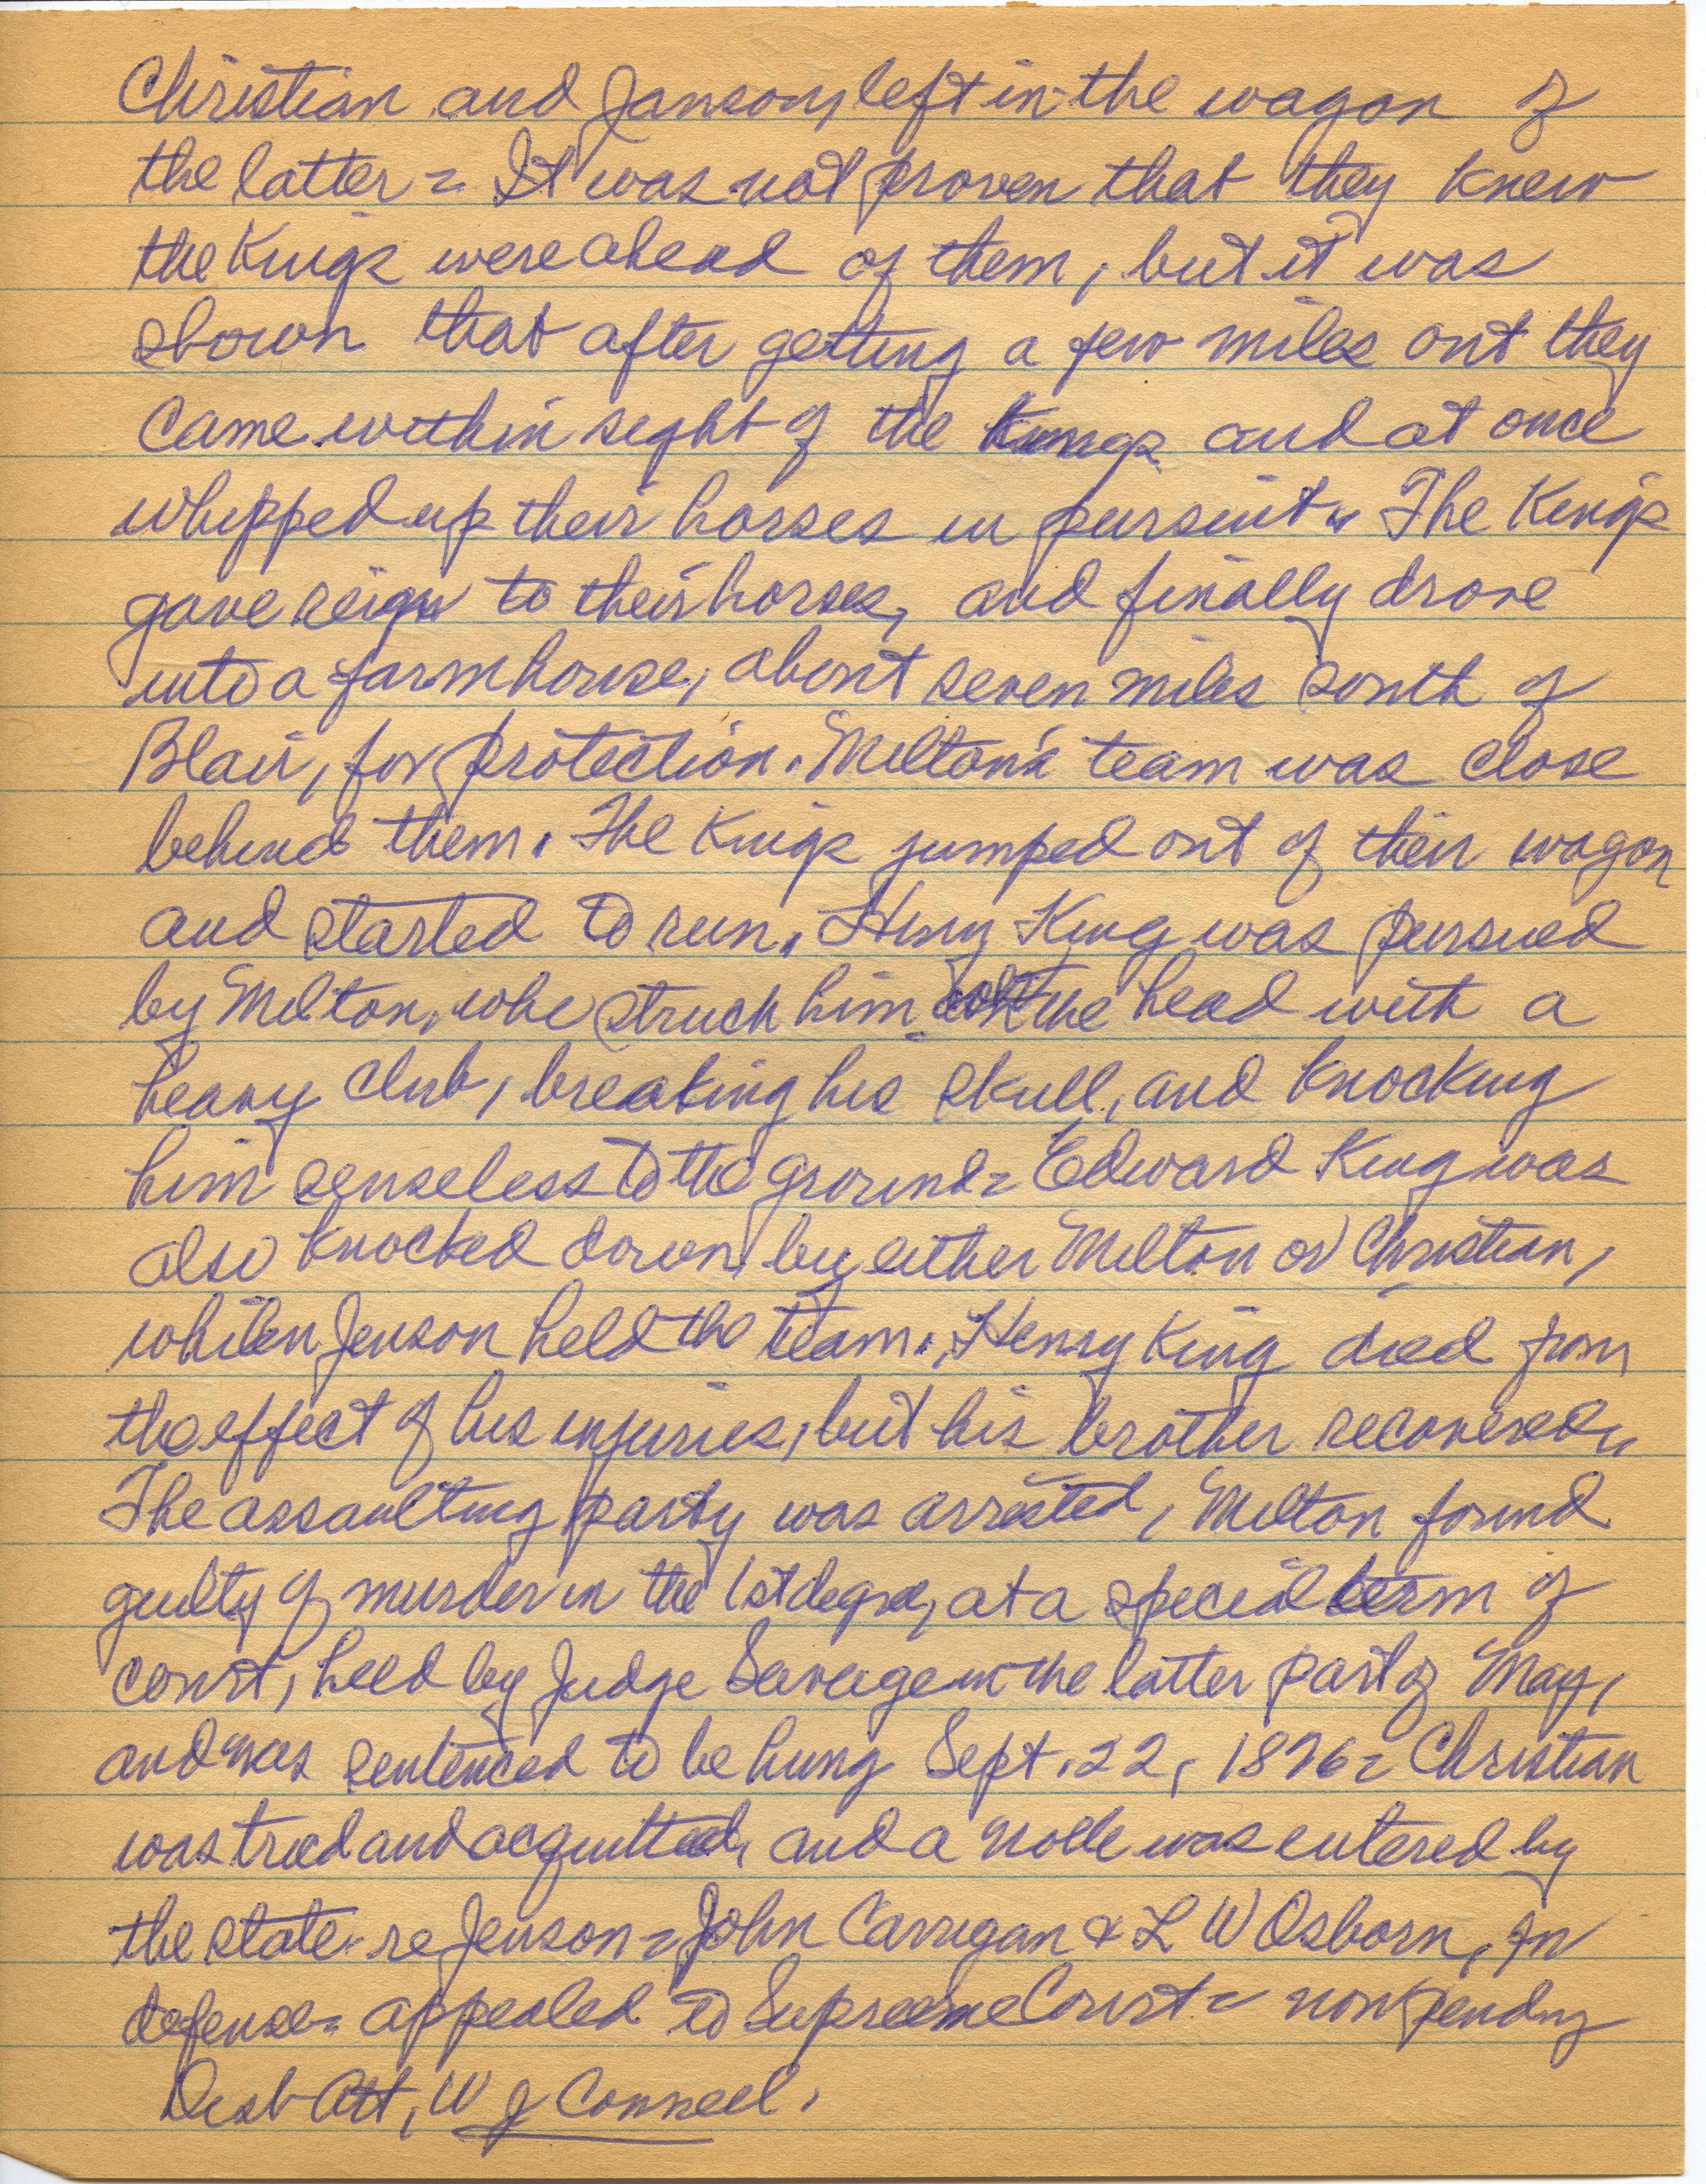 Christian and Janson, left in the wagon of
the latter = It was not proven that they knew
the Kings were ahead of them, but it was
shown that after getting a few miles out they
came within sight of the Kings and at once
whipped up their horses in pursuit. The Kings
gave reign to their horses, and finally drove
into a farm house, about seven miles south of
Blair, for protection. Milton's team was close
behind them. The Kings jumped out of their wagon
and started to run. Henry King was pursued
by Milton, who struck him on the head with a
heavy club, breaking his skull, and knocking
him senseless to the ground = Edward King was
also knocked down, by either Milton or Christian,
while Jenson held the team. Henry King died from
the effect of his injuries, but his brother recovered.
The assaulting party was arrested, Milton found
guilty of murder in the 1st degree, at a special term of
court, held by Judge Savage in the latter part of May,
and was sentenced to be hung Sept. 22, 1876 = Christian
was tried and acquitted, and a nolle was entered by
the state re Jenson = John Carrigan & L W Osborn, for
defense = appealed to Supreme Court = now pending
Dist Att, W J Connell.